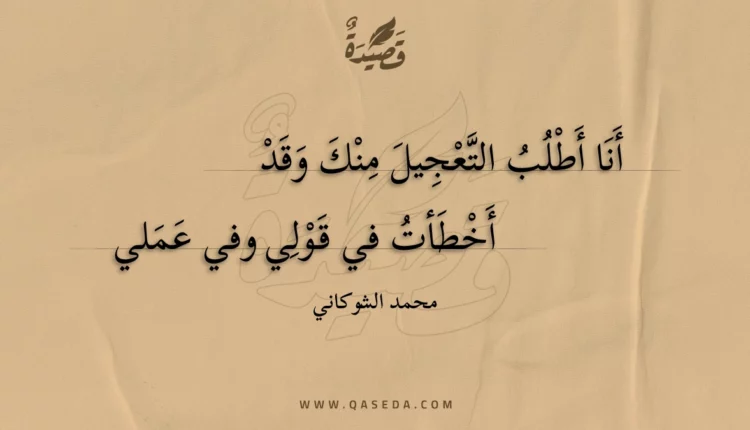 قَصِيْدَةٌ
أَنَا أَطْلُبُ التَّعْجِيلَ مِنْكَ وَقَدْ
أَخْطَأتُ في قَوْلِي وفي عَمَلي
محمد الشوكاني
WWW.QASEDA.COM